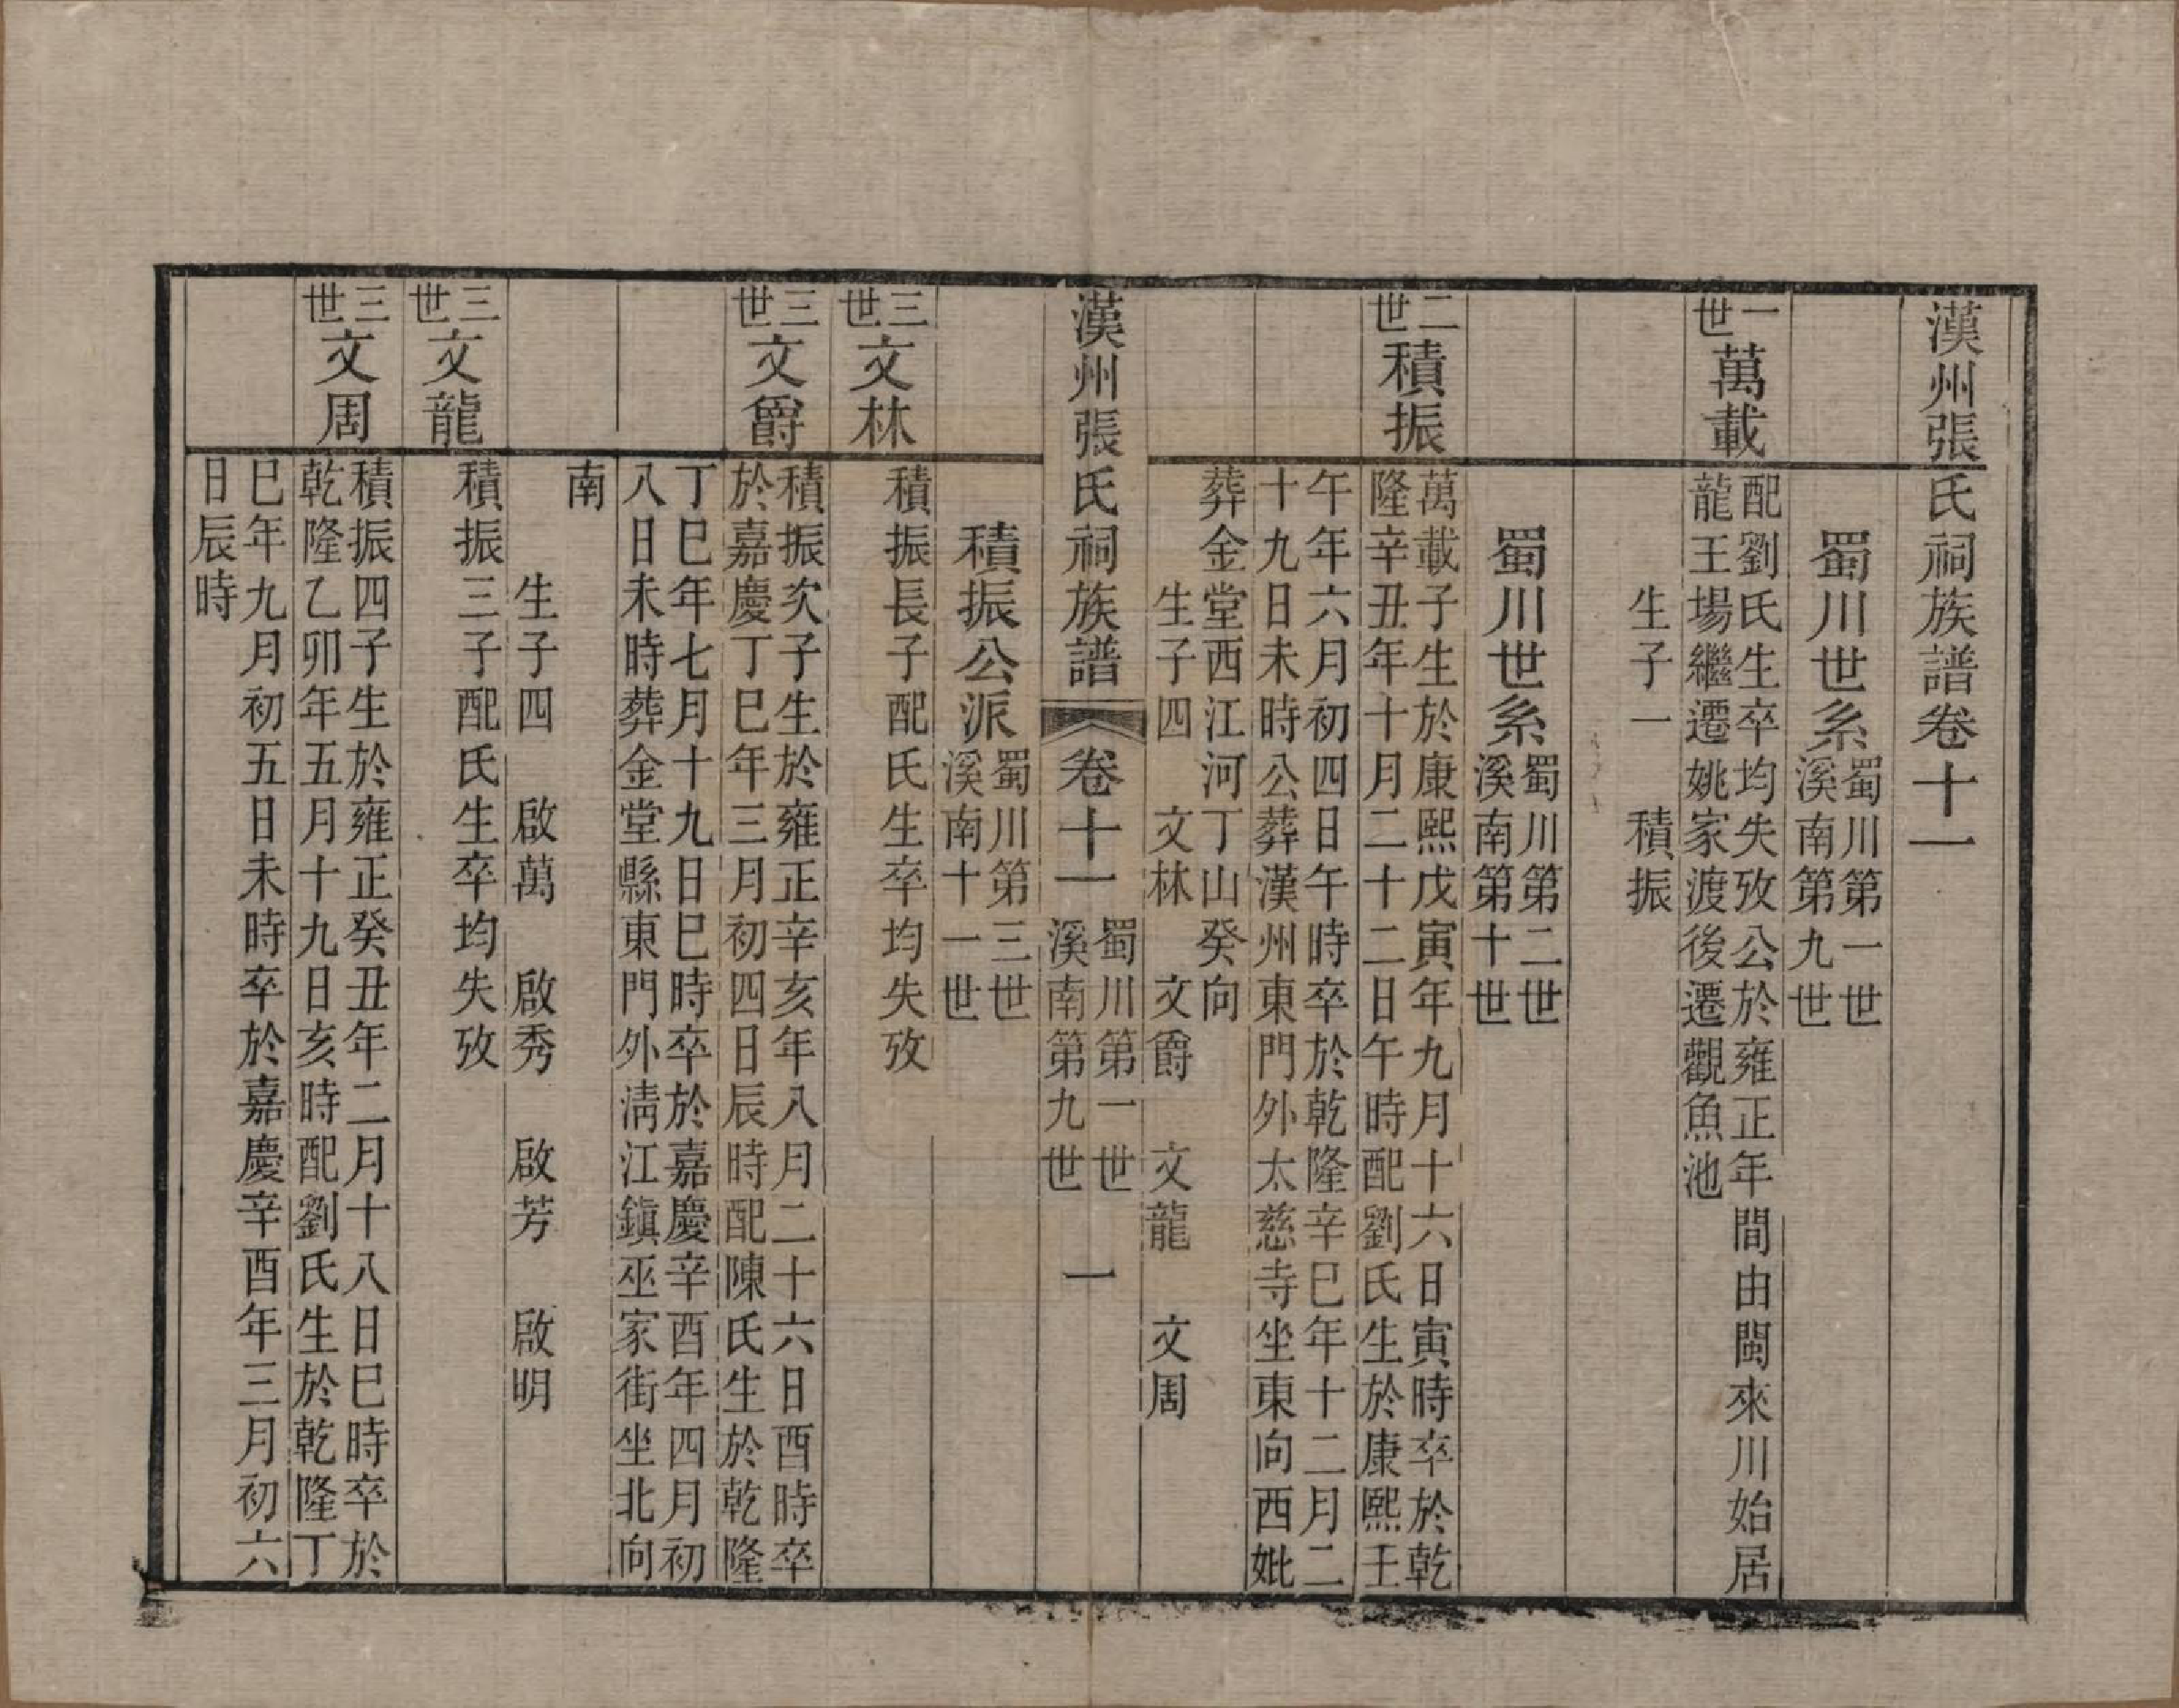 漢州張氏祠族譜卷十一
蜀川世系
蜀川第一世
溪南第九世
一世
萬載
配劉氏生卒均失攷公於雍正年間由閩來川始居
龍王場繼遷姚家渡後遷觀魚池
生子一 積振
蜀川世系
蜀川第二世
溪南第十世
二世
積振
萬載子生於康熙戊寅年九月十六日寅時卒於乾
隆辛丑年十月二十二日午時配劉氏生於康熙王
午年六月初四日午時卒於乾隆辛巳年十二月二
十九日未時公葬漢州東門外太慈寺坐東向西妣
葬金堂西江河丁山癸向
生子四 文林 文爵 文龍 文周
漢州張氏祠族譜 卷十一
蜀川第一世
溪南第九世
一
積振公派
蜀川第三世
溪南十一世
三世
文林
積振長子配氏生卒均失攷
三世
文爵
積振次子生於雍正辛亥年八月二十六日酉時卒
於嘉慶丁巳年三月初四日辰時配陳氏生於乾隆
丁巳年七月十九日巳時卒於嘉慶辛酉年四月初
八日未時葬金堂縣東門外淸江鎭巫家街坐北向
南
生子四 啟萬 啟秀 啟芳 啟明
三世
文龍
積振三子配氏生卒均失攷
三世
文周
積振四子生於雍正癸丑年二月十八日巳時卒於
乾隆乙卯年五月十九日亥時配劉氏生於乾隆丁
巳年九月初五日未時卒於嘉慶辛酉年三月初六
日辰時